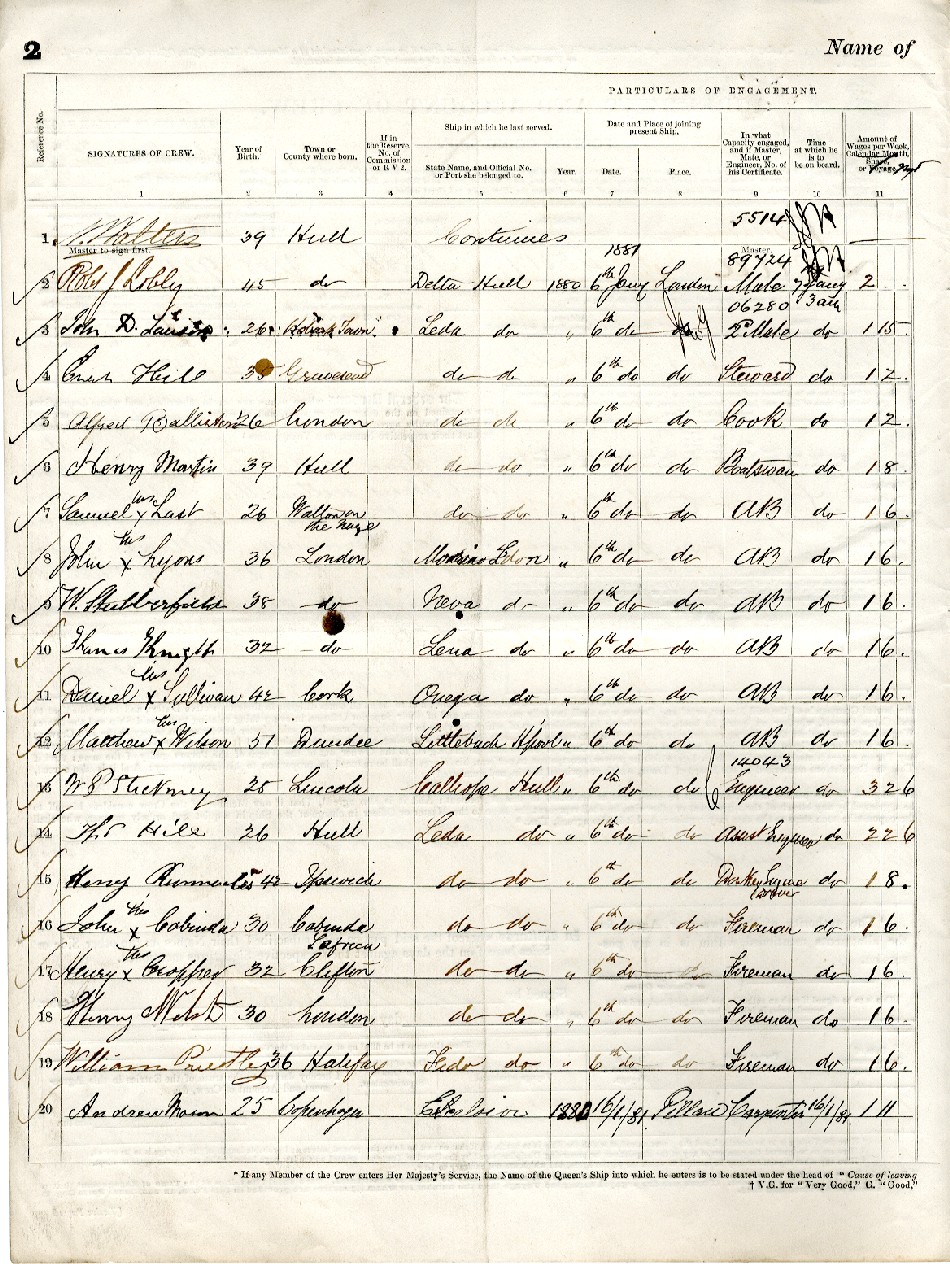 2 Name of
PARTICULARS OF ENGAGEMENT.
Reference No.
SIGNATURES OF CREW. Year of Birth. Town or County where born. If in the Reserve No. of Commission or R V 2. Ship in which he last served. Date and Place of joining present Ship. In what Capacity engaged, and if Master, Mate, or Engineer, No. of his Certificate. Time at which he is to be on board. Amount of Wages per Week, Calendar Month, Share, or Voyage.
State Name, and Official No. or Port she belonged to. Year. Date. Place.
1 2 3 4 5 6 7 8 9 10 11
5514
1 Walters 39 Hull Continues
Master to sign first. 1881 Master
89724
2 Robt J Lobley 45 do Delta Hull 1880 6th Jany London Mate 2
06280
3 John D. 26 Leda do " 6th do 2 Mate do 1 15
4 Hill 35 Gravesend do do " 6th do do Steward do 1 2.
5 Alfred 26 London do do " 6th do do Cook do 1 2.
6 Henry Martin 39 Hull do do " 6th do do Boatswain do 1 8.
7 Samuel his x Last 26 Walton on the naze do do " 6th do do AB do 1 6.
8 John his x Lyons 36 London " 6th do do AB do 1 6.
9 W. 38 do Neva do " 6th do do AB do 1 6.
10 Thomas Knight 32 do Lena do " 6th do do AB do 1 6.
11 Daniel his x Sullivan 42 Cork Onega do " 6th do do AB do 1 6.
12 Matthew his x Wilson 51 Dundee Littlebeck Hpool " 6th do do AB do 1 6.
14043
13 W P Stickney 25 Lincoln Calliope Hull " 6th do do Engineer do 3 2 6
14 Hill 26 Hull Leda do " 6th do do Assist Engineer do 2 2 6
15 Henry 42 Ipswich do do " 6th do do do 1 8.
16 John his x Cobinda 30 Cabinda do do " 6th do do Fireman do 1 6.
17 Henry his x Cropper 32 Clifton do do " 6th do do Fireman do 1 6
18 Henry 30 London do do " 6th do do Fireman do 1 6.
19 William Priestley 36 Halifax do " 6th do do Fireman do 1 6.
20 Andrew 25 Copenhagen 16/1/81 Pillau Carpenter 16/1/81 1 11
* If any Member of the Crew enters Her Majesty's Service, the Name of the Queen's Ship into which he enters is to be stated under the head of "Cause of leaving
† V.G. for "Very Good," G. "Good,"